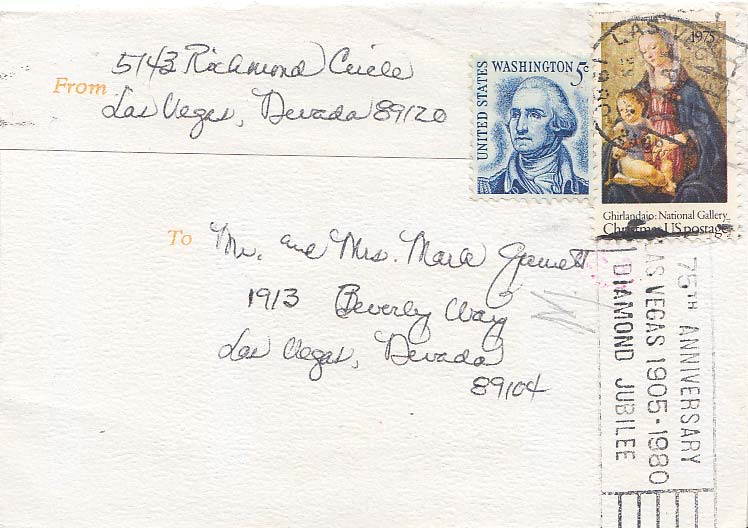 From
5143 Richmond Circle
Las Vegas, Nevada 89120
UNITED STATES
WASHINGTON 5¢
1975
LAS VEGAS
Ghirlandaio: National Gallery
Christmas US postage
To
Mr. and Mrs. Mark Garrett
1913 Beverly Way
Las Vegas, Nevada
89104
75TH ANNIVERSARY
LAS VEGAS 1905-1980
DIAMOND JUBILEE